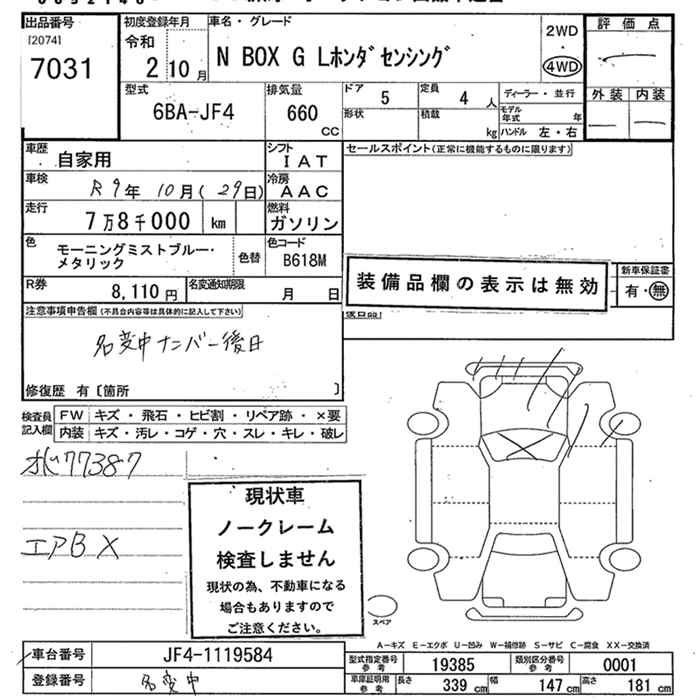 出品番号
[2074]
7031
初度登録年月
令和
2 10 月
車名・グレード
N BOX G Lホンダセンシング
2WD
4WD
評価点
外装 内装
型式
6BA-JF4
排気量
660
CC
ドア
5
定員
4 人
形状
積載
kg
ディーラー・並行
モデル年式
年
ハンドル 左・右
車歴
自家用
シフト
IAT
車検
R 9年 10月(29日)
冷房
AAC
走行
7万8千000 km
燃料
ガソリン
色
モーニングミストブルー・
メタリック
色替
色コード
B618M
R券
8,110 円
名変通知期限
月 日
セールスポイント(正常に機能するものに限ります)
装備品欄の表示は無効
新車保証書
有・無
後日品
注意事項申告欄(不具合内容等は具体的に記入して下さい)
名変中ナンバー後日
修復歴 有〔箇所 〕
検査員
記入欄
FW キズ・飛石・ヒビ割・リペア跡・×要
内装 キズ・汚レ・コゲ・穴・スレ・キレ・破レ
77387
エアB X
現状車
ノークレーム
検査しません
現状の為、不動車になる
場合もありますので
ご注意ください。
スペア
A-キズ E-エクボ U-凹み W-補修跡 S-サビ C-腐食 XX-交換済
車台番号
JF4-1119584
登録番号
名変中
型式指定番号
参考
19385
類別区分番号
参考
0001
車庫証明用
参考
長さ
339 cm
幅
147 cm
高さ
181 cm